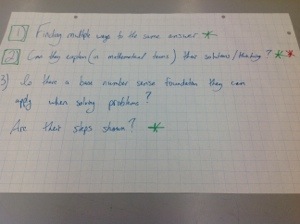 1 Finding multiple ways to the same answer *
2 Can they explain (in mathematical terms) their solutions/thinking? * *
3) Is there a base number sense foundation they can
apply when solving problems?
Are their steps shown? *